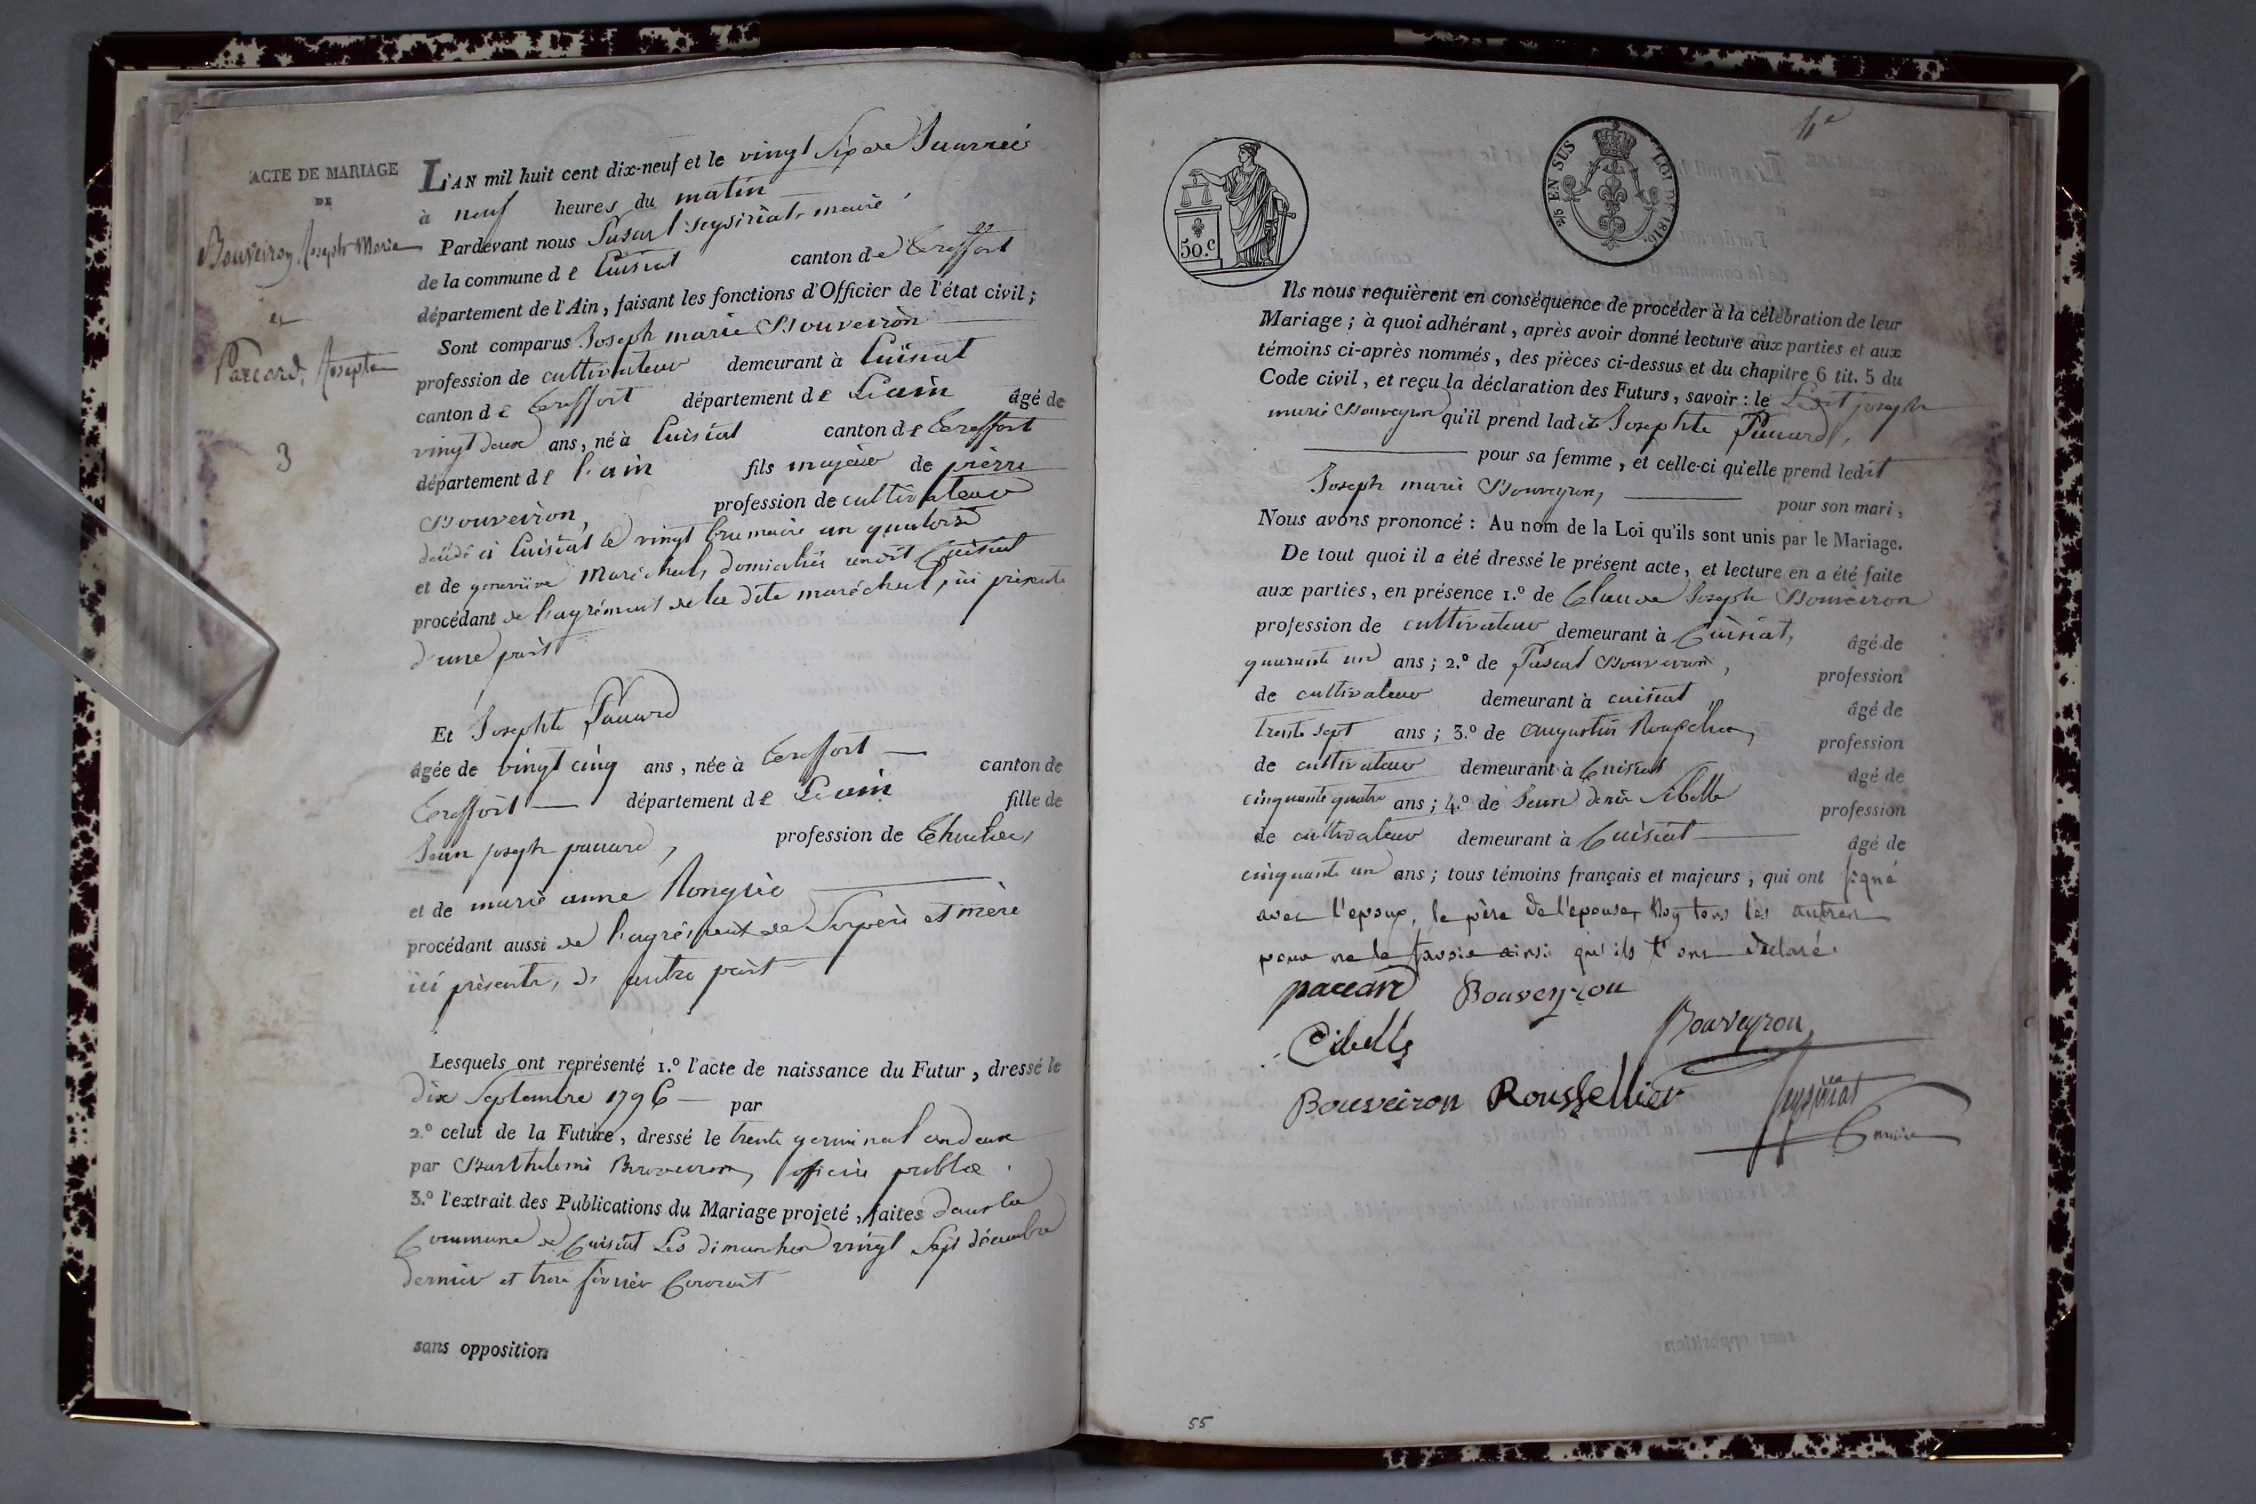 ACTE DE MARIAGE
DE
Bouveiron, Joseph Marie
et
Paccard, Josephte
3
L'AN mil huit cent dix-neuf et le vingt six de Janvier
à neuf heures du matin
Pardevant nous Pascal Seysiriat maire
de la commune de Cuisiat canton de Treffort
département de l'Ain, faisant les fonctions d'Officier de l'état civil;
Sont comparus Joseph marie Bouveiron
profession de cultivateur demeurant à Cuisiat
canton de Treffort département de L'ain âgé de
vingt deux ans, né à Cuisiat canton de Treffort
département de l'ain fils majeur de pierre
Bouveiron, profession de cultivateur
décédé à Cuisiat le vingt brumaire an quatorze
et de genevieve Maréchal, domiciliés audit Cuisiat
procédant de l'agrément de la dite maréchal, ici présente
d'une part
Et Josephte Paccard
âgée de vingt cinq ans, née à Treffort canton de
Treffort département de L'ain fille de
Jean joseph paccard, profession de
et de marie anne
procédant aussi de l'agrément de Ses père et mère
ici présents, d'autre part
Lesquels ont représenté 1.º l'acte de naissance du Futur, dressé le
dix Septembre 1796 par
2.º celui de la Future, dressé le trente germinal an deux
par Barthelemi Bouveiron, officier public.
3.º l'extrait des Publications du Mariage projeté, faites dans la
Commune de Cuisiat Les dimanches vingt Sept décembre
dernier et trois janvier Courant
sans opposition
50.c
2/5 EN SUS LOI DE 1816.
Ils nous requièrent en conséquence de procéder à la célébration de leur
Mariage; à quoi adhérant, après avoir donné lecture aux parties et aux
témoins ci-après nommés, des pièces ci-dessus et du chapitre 6 tit. 5 du
Code civil, et reçu la déclaration des Futurs, savoir: le Ledit joseph
marie Bouveyron qu'il prend ladite Josephte Paccard,
pour sa femme, et celle-ci qu'elle prend ledit
Joseph marie Bouveyron, pour son mari,
Nous avons prononcé: Au nom de la Loi qu'ils sont unis par le Mariage.
De tout quoi il a été dressé le présent acte, et lecture en a été faite
aux parties, en présence 1.º de Claude Joseph Bouveiron
profession de cultivateur demeurant à Cuisiat, âgé de
quarante un ans; 2.º de Pascal Bouveiron, profession
de cultivateur demeurant à cuisiat, âgé de
trente sept ans; 3.º de augustin profession
de cultivateur demeurant à Cuisiat âgé de
cinquante quatre ans; 4.º de Jean denis Sibelle profession
de cultivateur demeurant à Cuisiat âgé de
cinquante un ans; tous témoins français et majeurs, qui ont signé
avec l'epoux, le père de l'epouse, Non tous les autres
pour ne le savoir ainsi qu'ils l'ont déclaré.
paccard Bouveyron
Cibelle Bouveyron
Bouveiron Roussellier Seysiriat
maire
55